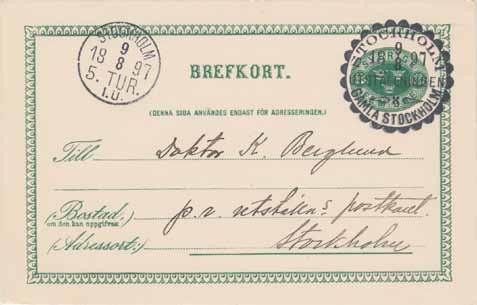 STOCKHOLM
9
18 8 97
5. TUR.
I.U.
STOCKHOLM
9
18 8 97
GAMLA STOCKHOLM
BREFKORT.
(DENNA SIDA ANVÄNDES ENDAST FÖR ADRESSERINGEN.)
Till Doktor K. Berglund
(Bostad, p. r. utställn:s postkont.
om den kan uppgifvas)
(Adressort:) Stockholm